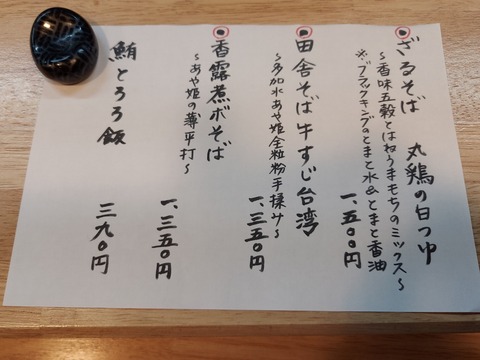 ざるそば 丸鶏の白つゆ
〜香味五穀とはねうまもちのミックス〜
※ブラックキングのとまと水&とまと香油
一、五〇〇円
田舎そば 牛すじ台湾
〜多加水あや姫全粒粉手揉み〜
一、三五〇円
香露煮ボそば
〜あや姫の薄平打〜
一、三五〇円
鮪とろろ飯
三九〇円